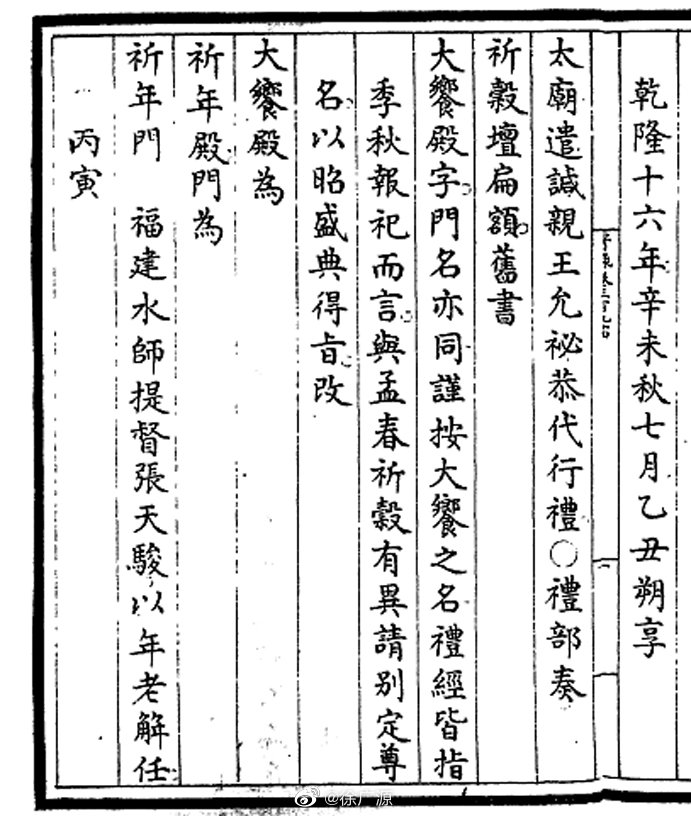 乾隆十六年辛未秋七月乙丑朔享
太廟遣諴親王允祕恭代行禮○禮部奏
祈穀壇扁額舊書
大饗殿字門名亦同謹按大饗之名禮經皆指
季秋報祀而言與孟春祈穀有異請别定尊
名以昭盛典得旨改
大饗殿為
祈年殿門為
祈年門　福建水師提督張天駿以年老解任
丙寅
@徐广源